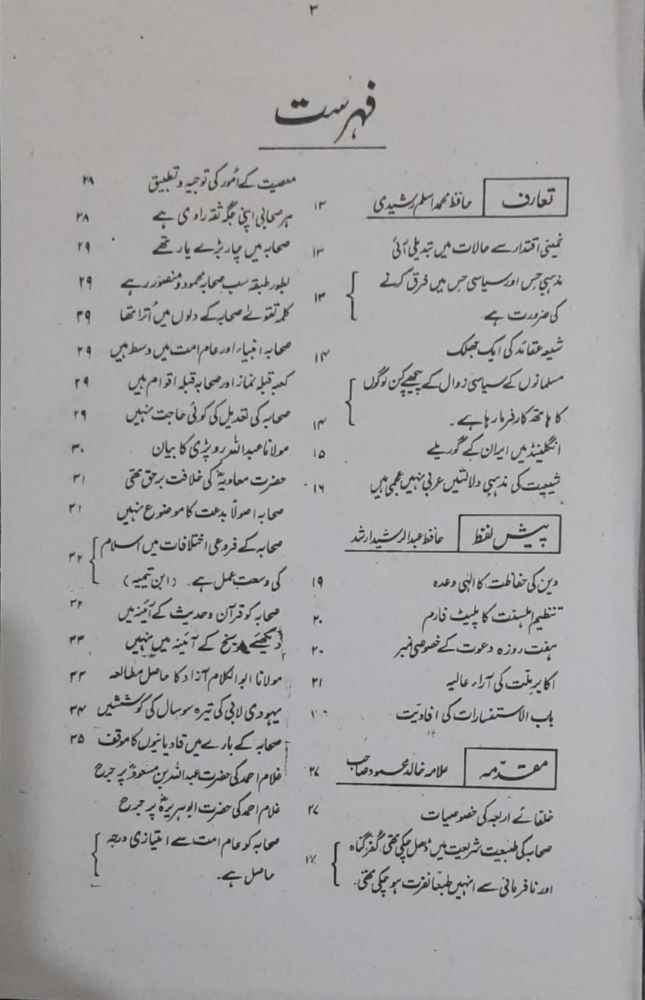 ۳
فہرست
تعارف حافظ محمد اسلم رشیدی ۱۳
خمینی اقتدار سے حالات میں تبدیلی آئی ۱۳
مذہبی حِس اور سیاسی حِس میں فرق کرنے
کی ضرورت ہے ۱۳
شیعہ عقائد کی ایک جھلک ۱۴
مسلمانوں کے سیاسی زوال کے پیچھے کن لوگوں
کا ہاتھ کارفرما رہا ہے۔ ۱۴
انگلینڈ میں ایران کے گوریلے ۱۵
شیعیت کی مذہبی دلالتیں عربی نہیں عجمی ہیں ۱۶
پیش لفظ حافظ عبدالرشید ارشد
دین کی حفاظت کا الٰہی وعدہ ۱۹
تنظیم اہلسنت کا پلیٹ فارم ۲۰
ہفت روزہ دعوت کے خصوصی نمبر ۲۰
اکابر ملت کی آراء عالیہ ۲۱
باب الاستفسارات کی افادیت
مقدمہ علامہ خالد محمود صاحب ۲۷
خلفائے اربعہ کی خصوصیات ۲۷
صحابہ کی طبیعت شریعت میں ڈھل چکی تھی کفر گناہ
اور نافرمانی سے انہیں طبعاً نفرت ہو چکی تھی۔
معصیت کے امُور کی توجیہ و تطبیق ۲۸
ہر صحابی اپنی جگہ ثقہ راوی ہے ۲۸
صحابہ میں چار بڑے یار تھے ۲۹
بطور طبقہ سب صحابہ محمود و منصور رہے ۲۹
کلمہ تقویٰ صحابہ کے دلوں میں اُترا تھا ۲۹
صحابہ انبیاء اور عام امت میں وسط ہیں ۲۹
کعبہ قبلہ نماز اور صحابہ قبلہ اقوام ہیں ۲۹
صحابہ کی تعدیل کی کوئی حاجت نہیں ۲۹
مولانا عبداللہ روپڑی کا بیان ۳۰
حضرت معاویہؓ کی خلافت برحق تھی ۳۱
صحابہ اصولاً بدعت کا موضوع نہیں ۳۱
صحابہ کے فروعی اختلافات میں اسلام
کی وسعت عمل ہے۔ (ابن تیمیہ) ۳۲
صحابہ کو قرآن و حدیث کے آئینہ میں ۳۲
دیکھئے تاریخ کے آئینہ میں نہیں ۳۳
مولانا ابوالکلام آزاد کا حاصل مطالعہ ۳۳
یہودی لابی کی تیرہ سو سال کی کوششیں ۳۴
صحابہ کے بارے میں قادیانیوں کا موقف ۳۵
غلام احمد کی حضرت عبداللہ بن مسعودؓ پر جرح
غلام احمد کی حضرت ابوہریرہؓ پر جرح
صحابہ کو عام امت سے امتیازی درجہ
حاصل ہے۔